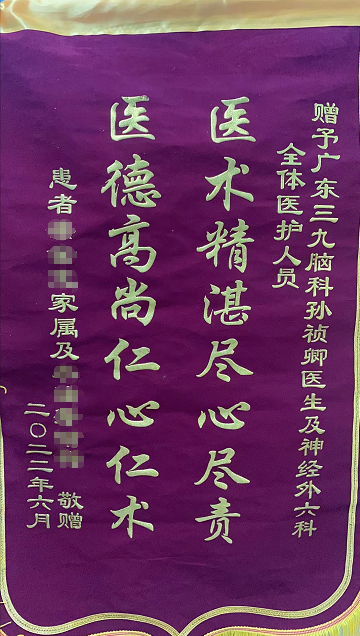 赠予广东三九脑科孙祯卿医生及神经外六科
全体医护人员
医术精湛尽心尽责
医德高尚仁心仁术
患者 家属及
敬赠
二〇二二年六月